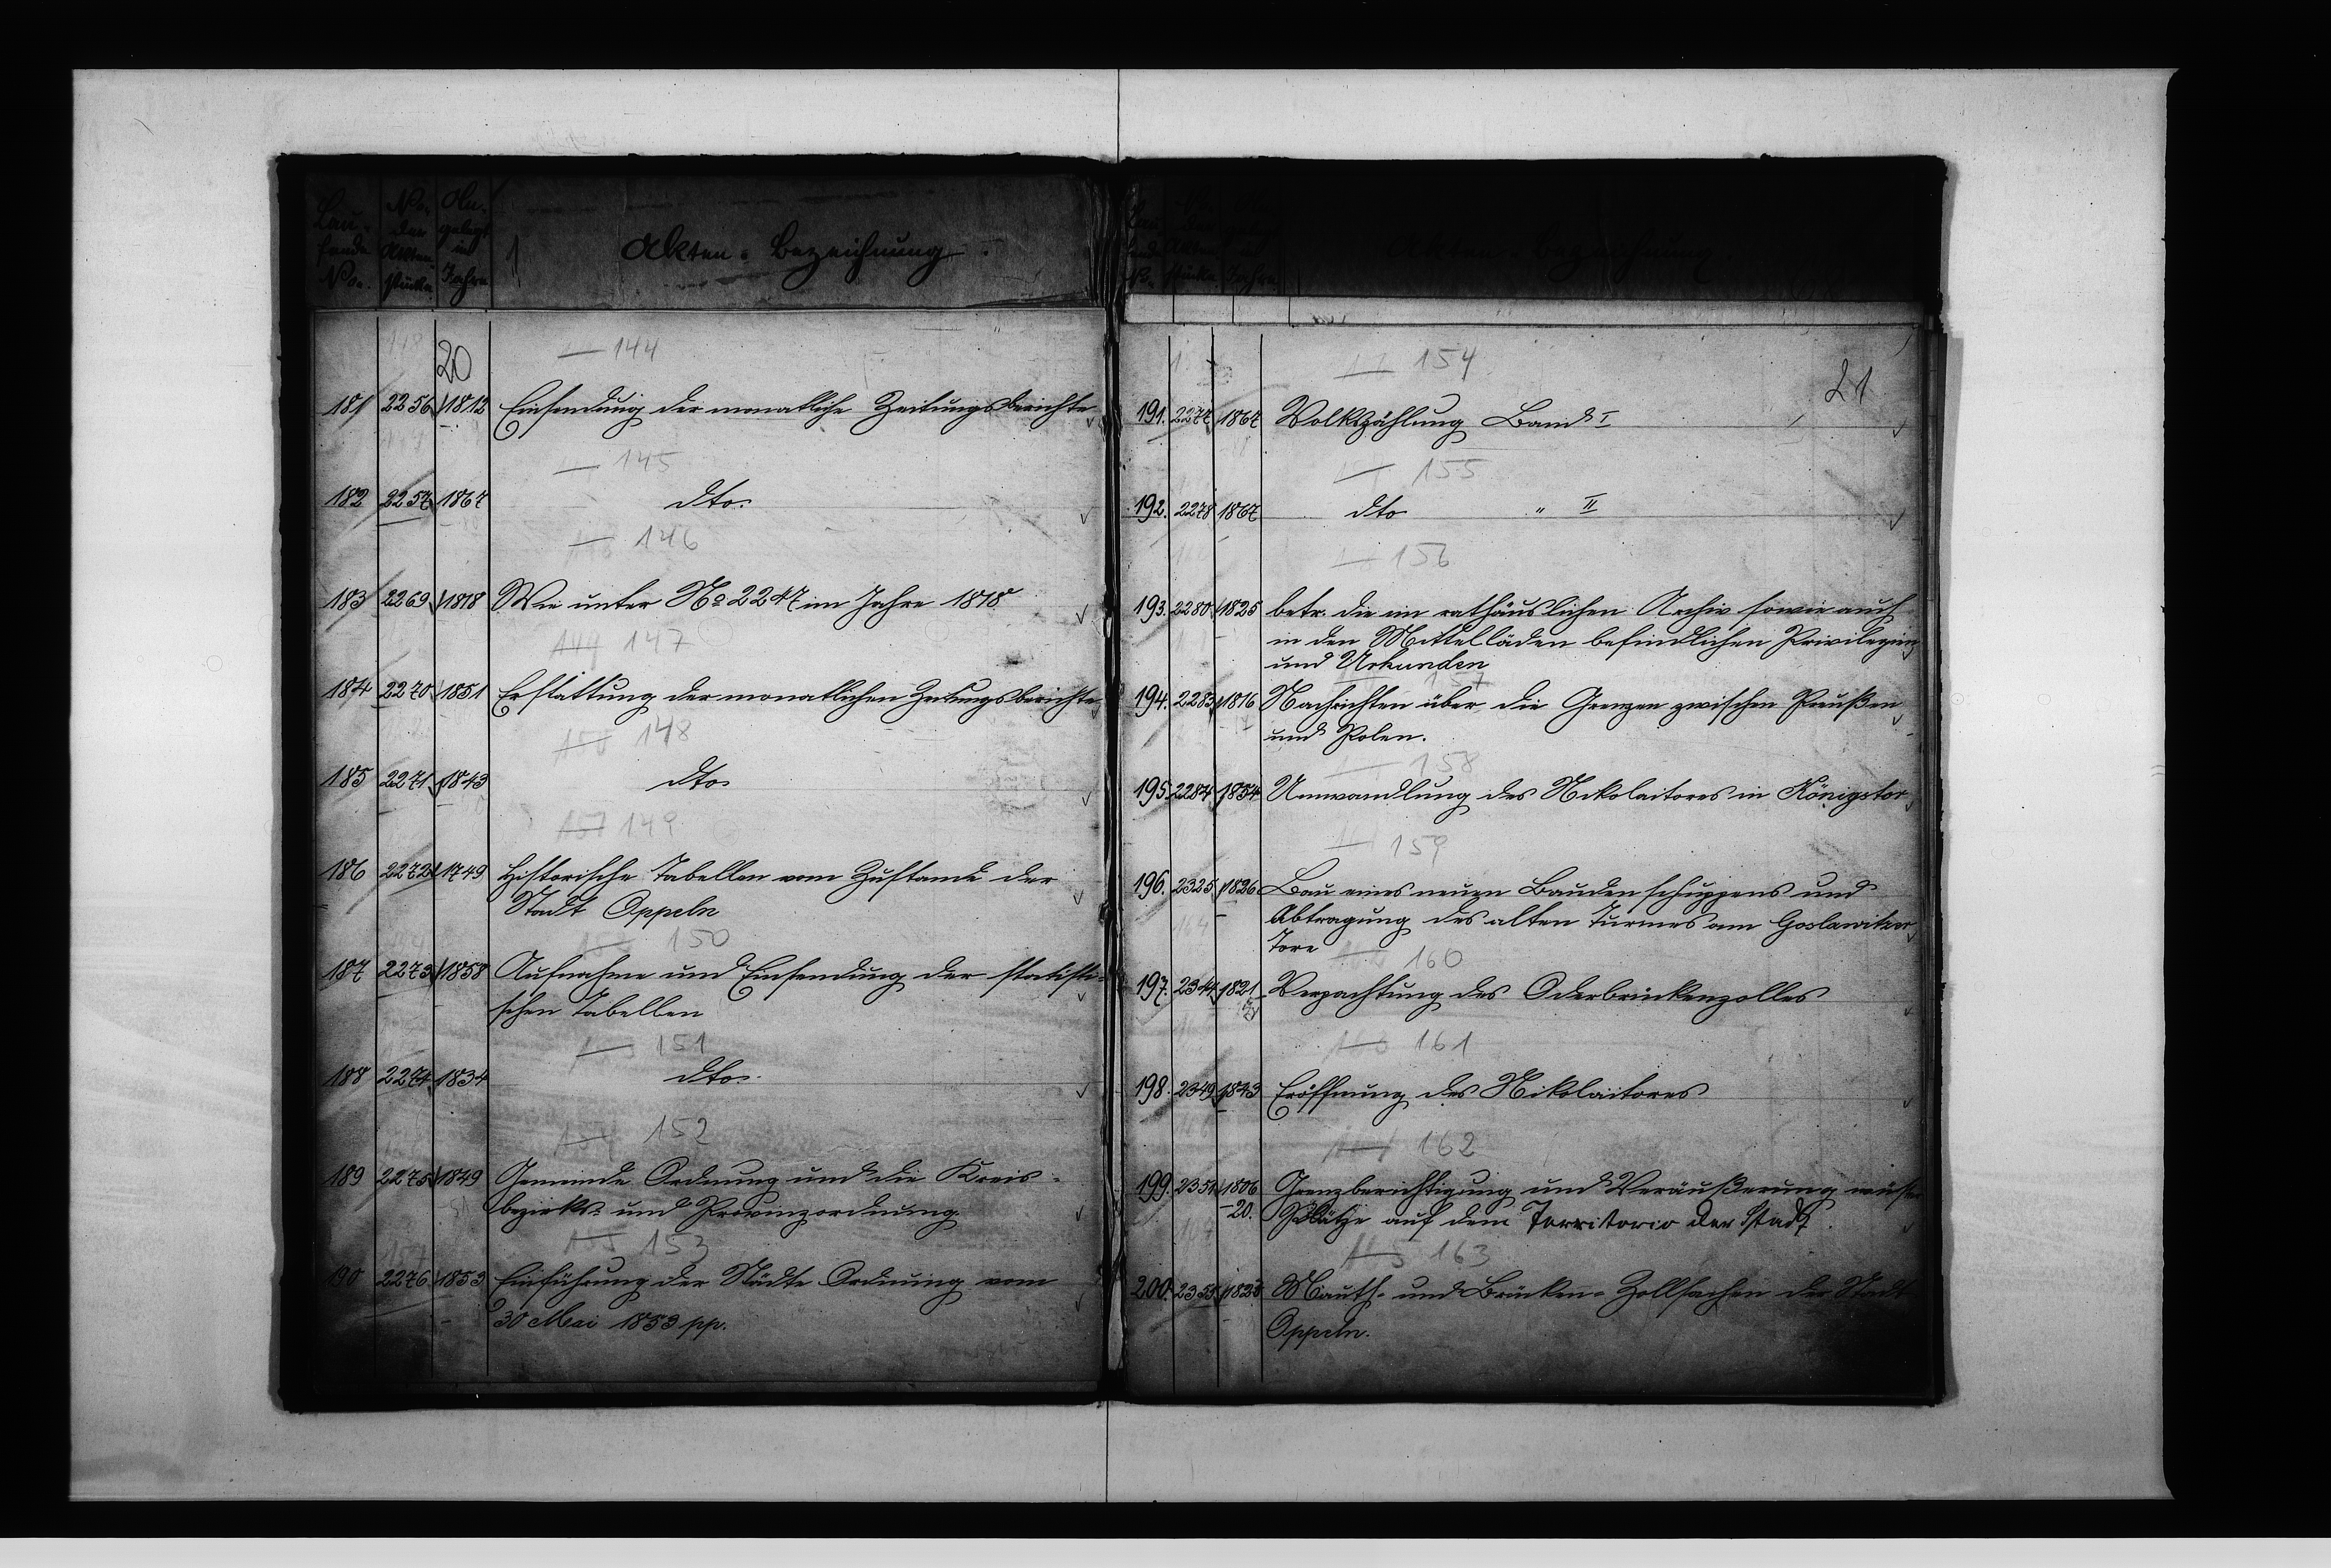 Lau-
fende
No.
No.
der
Akten-
stücke
An-
gelegt
im
Jahre
Akten-Bezeichnung.
20
144
181 2256 1812 Einsendung der monatliche Zeitungsberichte
145
182 2257 1867 dto.
146
183 2269 1818 Wie unter No 2247 im Jahre 1818
147
184 2270 1851 Erstattung der monatlichen Zeitungsberichte
148
185 2271 1843 dto.
149
186 2272 1749 Historische Tabellen vom Zustande der
Stadt Oppeln
150
187 2273 1858 Aufnahme und Einsendung der statisti-
schen Tabellen
151
188 2274 1834 dto.
152
189 2275 1849 Gemeinde Ordnung und die Kreis-
bezirks- und Provinzordnung.
153
190 2276 1853 Einführung der Städte Ordnung vom
30 Mai 1853 pp.
Akten-Bezeichnung
21
154
191. 2277 1867 Volkszählung Band I
155
192. 2278 1867 dto " II
156
193. 2280 1825 betr. die im rathäuslichen Archiv sowie auch
in den Mittelläden befindlichen Privilegien
und Urkunden
157
194. 2283 1816 Nachrichten über die Grenzen zwischen Preußen
und Polen.
158
195. 2284 1834 Umwandlung des Nikolaitores in Königstor
159
196. 2325 1826 Bau eines neuen Baudenschuppens und
Abtragung des alten Turmes am Goslawitzer
Tore
160
197. 2344 1821 Verpachtung des Oderbrückenzolles
161
198. 2349 1843 Eröffnung des Nikolaitores
162
199. 2351 1806 Grenzberichtigung und Veräußerung wüster
-20. Plätze auf dem Territorio der Stadt.
163
200. 2355 1823 Mauth- und Brücken-Zollsachen der Stadt
Oppeln.